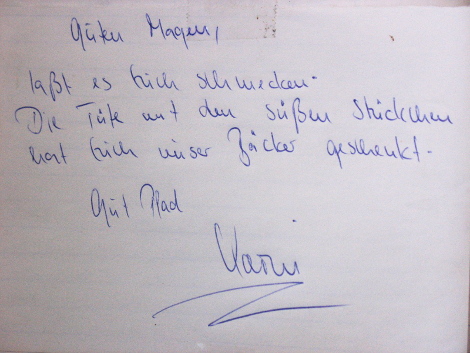 Guten Morgen,
laßt es Euch schmecken.
Die Tüte mit den süßen Stückchen
hat Euch unser Bäcker geschenkt.
Gut Pfad